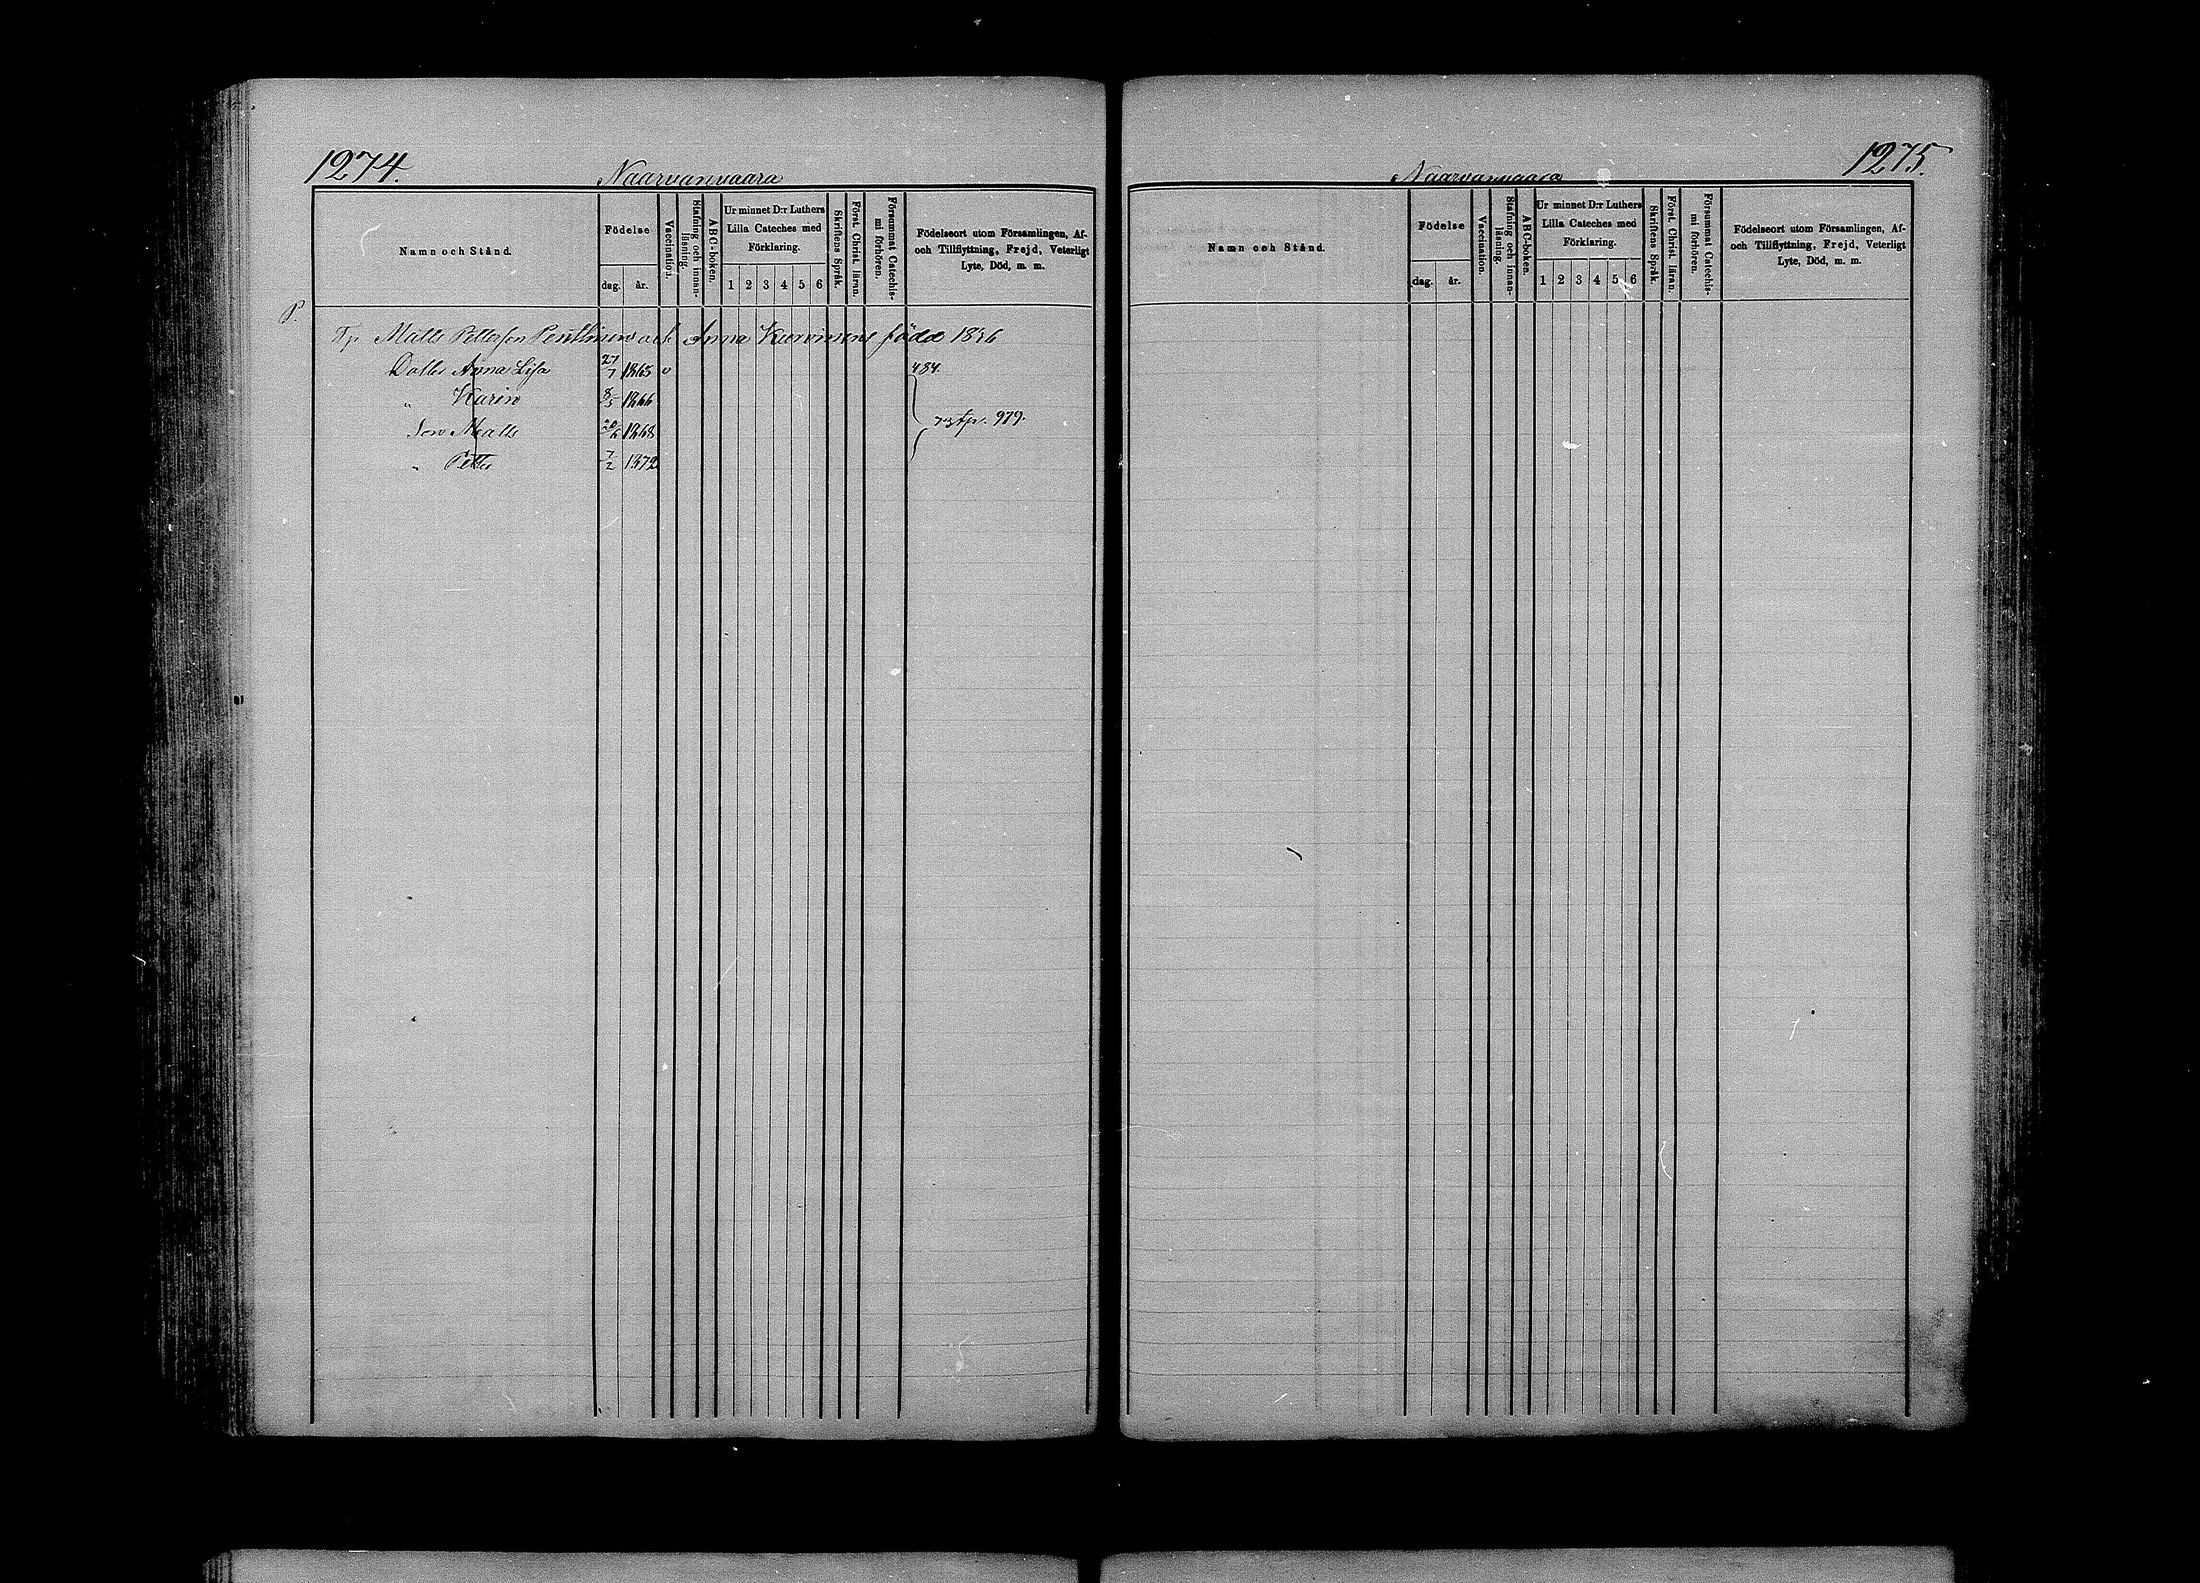 1274.
Naarvanvaara
Namn och Stånd.
Födelse
dag. år.
Vaccination.
Stafning och innanläsning.
ABC-boken.
Ur minnet D:r Luthers Lilla Cateches med Förklaring.
1 2 3 4 5 6
Skriftens Språk.
Först. Christ. läran.
Försummat Catechismi förhören.
Födelseort utom Församlingen, Af-
och Tillflyttning, Frejd, Veterligt
Lyte, Död, m. m.
P.
Tp. Matts Petterson Penttinen och Anna Kuronens föda 1836
Dotter Anna Lisa 27/7 1863 v 484.
" Karin 8/5 1866
Son Matts 1868 73 tp. 979.
" Petter 7/2 1872
1275.
Naarvanvaara
Namn och Stånd.
Födelse
dag. år.
Vaccination.
Stafning och innanläsning.
ABC-boken.
Ur minnet D:r Luthers
Lilla Cateches med
Förklaring.
1 2 3 4 5 6
Skriftens Språk.
Först. Christ. läran.
Försummat Catechismi förhören.
Födelseort utom Församlingen, Af-
och Tillflyttning, Frejd, Veterligt
Lyte, Död, m. m.